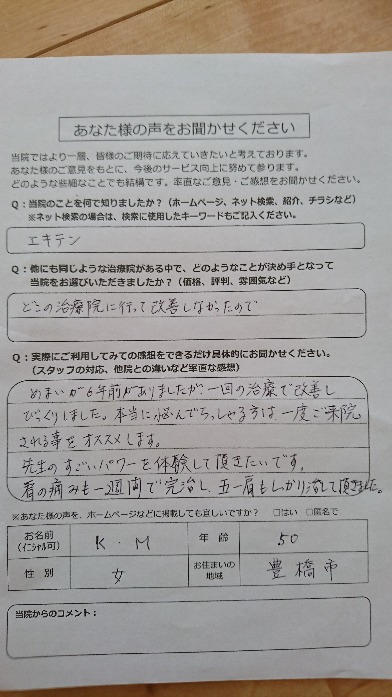 あなた様の声をお聞かせください
当院ではより一層、皆様のご期待に応えていきたいと考えております。
あなた様のご意見をもとに、今後のサービス向上に努めて参ります。
どのような些細なことでも結構です。率直なご意見・ご感想をお聞かせください。
Q：当院のことを何で知りましたか？（ホームページ、ネット検索、紹介、チラシなど）
※ネット検索の場合は、検索に使用したキーワードもご記入ください。
エキテン
Q：他にも同じような治療院がある中で、どのようなことが決め手となって
当院をお選びいただきましたか？（価格、評判、雰囲気など）
どこの治療院に行って改善しなかったので
Q：実際にご利用してみての感想をできるだけ具体的にお聞かせください。
（スタッフの対応、他院との違いなど率直な感想）
めまいが6年前がありましたが、一回の治療で改善し
びっくりしました。本当に悩んでらっしゃる方は一度ご来院
される事をオススメします。
先生のすごいパワーを体験して頂きたいです。
肩の痛みも一週間で完治し、五十肩もしっかり治して頂きました。
※あなた様の声を、ホームページなどに掲載しても宜しいですか？ □はい □匿名で
お名前 K．M 年 齢 50
（イニシャル可）
性 別 女 お住まいの 豊橋市
地域
当院からのコメント：